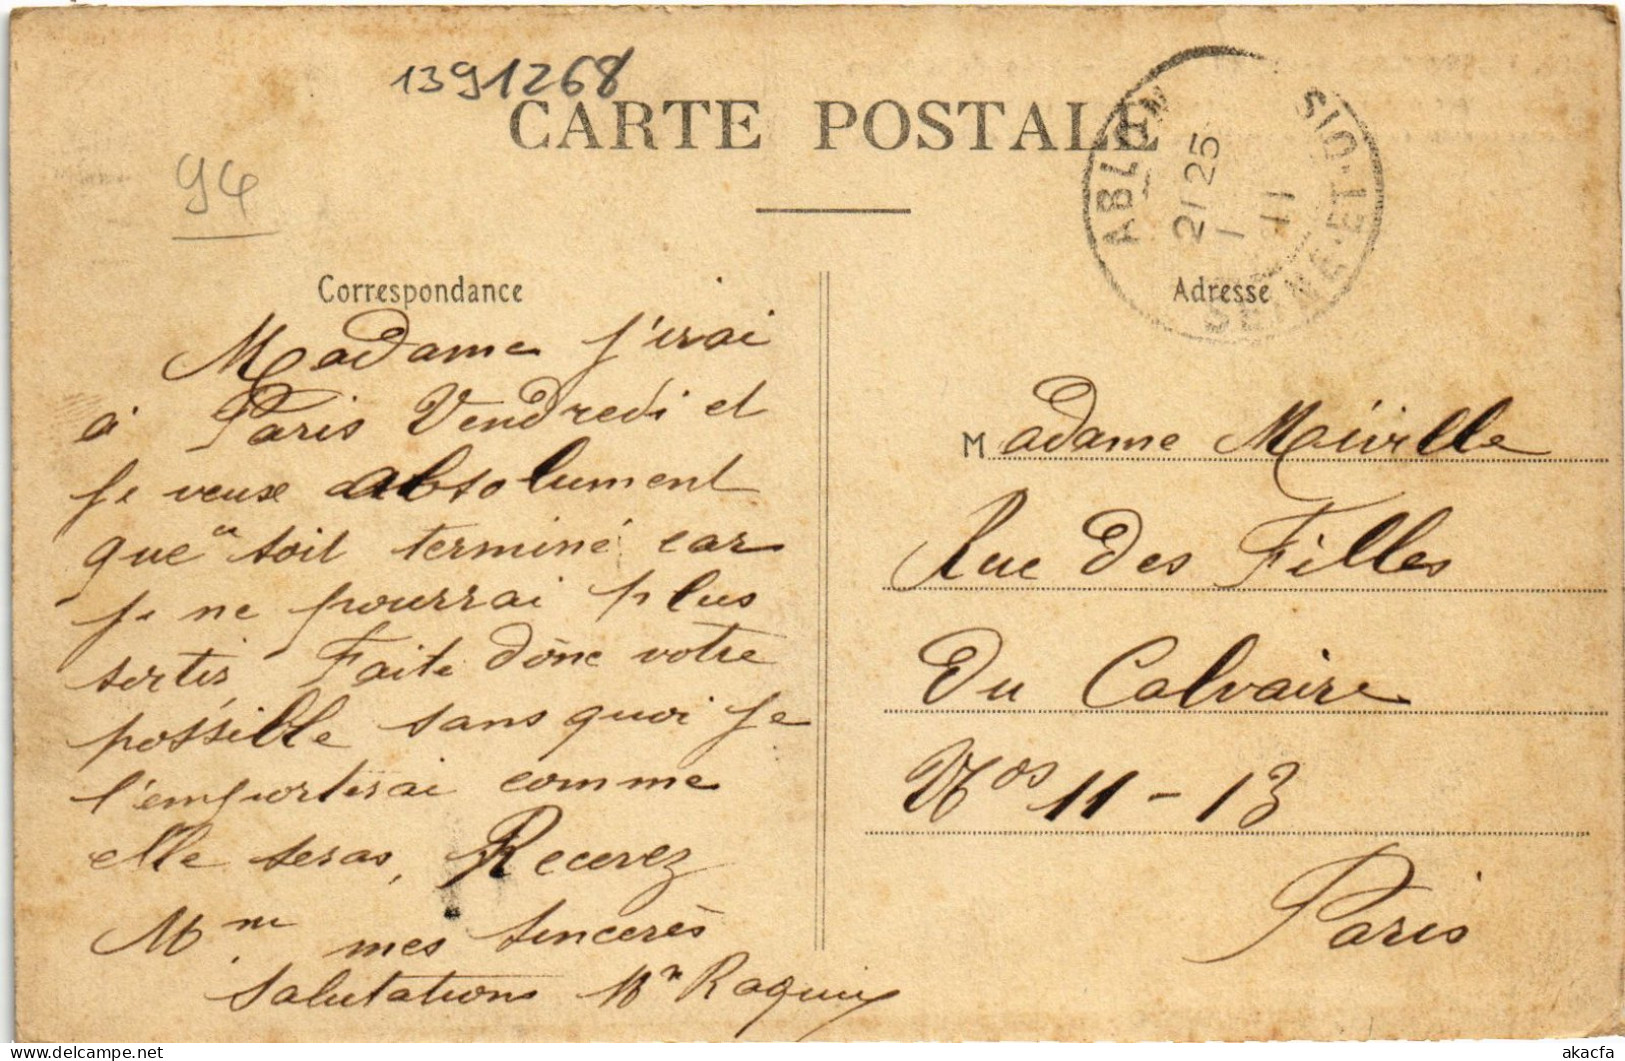 1391268
CARTE POSTALE
94
ABLON
21 25
1
11
SEINE-ET-OIS
Correspondance
Madame j'irai
à Paris Vendredi et
je veux absolument
que ce soit terminé car
je ne pourrai plus
sortir, Faite donc votre
possible sans quoi je
l'emporterai comme
elle seras, Recevez
Mme mes sincerès
Salutations Mr Raquin
Adresse
Madame
Rue des Filles
Du Calvaire
Nos 11 - 13
Paris
akacfa